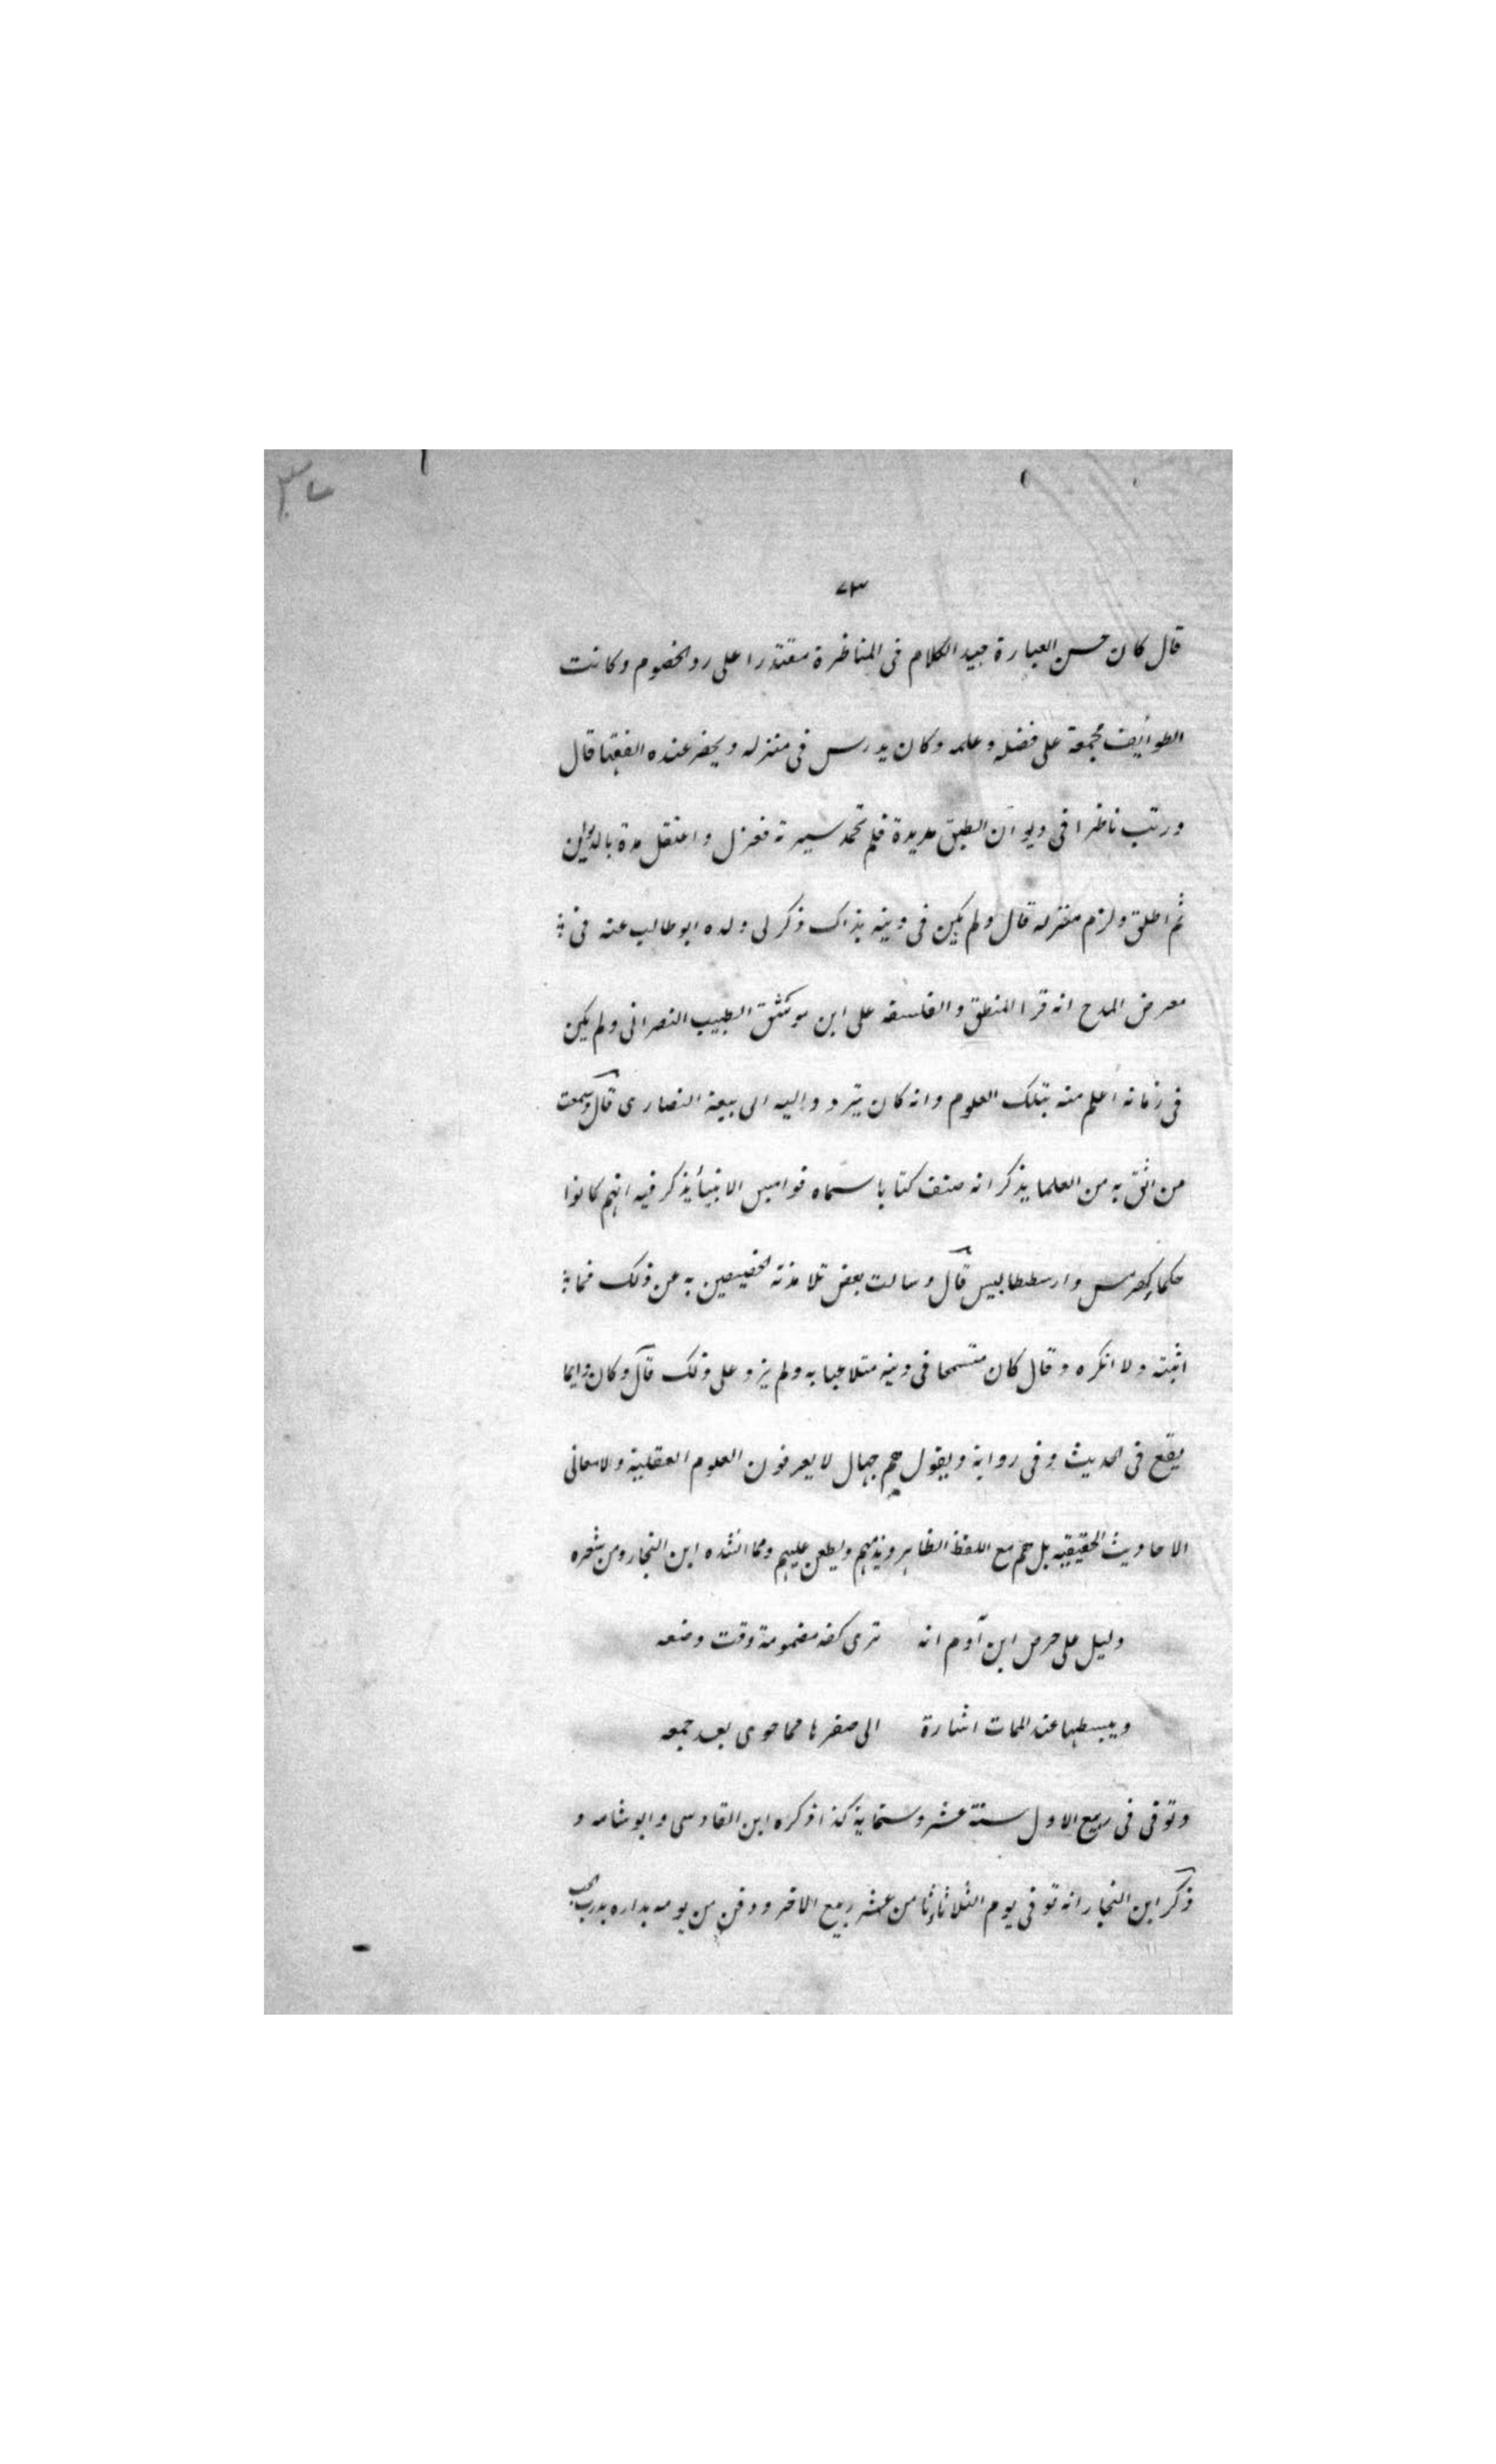 ٧٣
قال كان حسن العبارة جيد الكلام فى المناظرة مقتدرا على رد الخصوم وكانت
الطوايف مجمعة على فضله وعلمه وكان يدرس فى منزله ويحضر عنده الفقها قال
ورتب ناظرا فى ديوان المطبق مديدة فلم تحمد سيرته فعزل واعتقل مدة بالديوان
ثم اطلق ولزم منزله قال ولم يكن فى دينه بذاك ذكر لى ولده ابو طالب عنه فى
معرض المدح انه قرا المنطق والفلسفه على ابن مرقش الطبيب النصرانى ولم يكن
فى زمانه اعلم منه بتلك العلوم وانه كان يتردد اليه الى بيعة النصارى قال وسمعت
من اثق به من العلما يذكر انه صنف كتابا سماه نواميس الانبيأ يذكر فيه انهم كانوا
حكماء كهرمس وارسططاليس قال وسالت بعض تلامذته الخصيصين به عن ذلك فما
اثبته ولا انكره وقال كان متسمحا فى دينه متلاعبا به ولم يزد على ذلك قال وكان دايما
يقع فى الحديث وفى رواية ويقول هم جهال لا يعرفون العلوم العقلية ولا معانى
الاحاديث الحقيقيه بل هم مع اللفظ الظاهر ويذمهم ويطعن عليهم ومما انشده ابن النجار ومن شعره
دليل على حرص ابن آدم انه ترى كفه مضمومة وقت وضعه
ويبسطها عند الممات اشارة الى صفرها مما حوى بعد جمعه
وتوفى فى ربيع الاول سنة عشر وستماية كذا ذكره ابن القادسى وابو شامه و
ذكر ابن النجار انه توفى يوم الثلاثاء ثامن عشر ربيع الاخر ودفن من يومه بداره بدرب